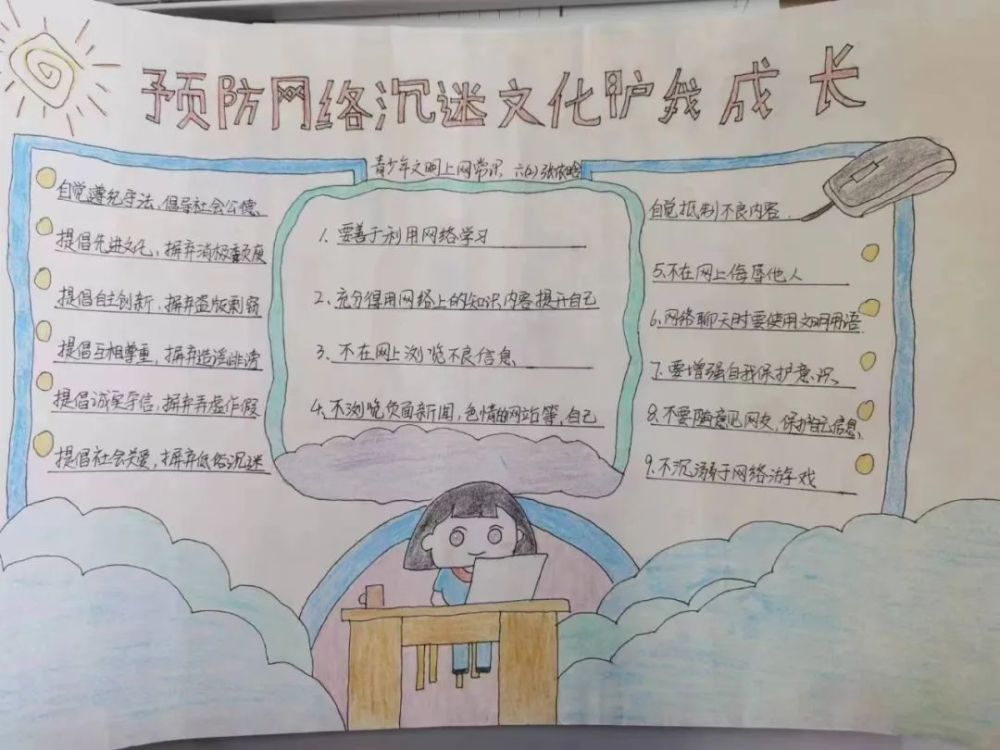 预防网络沉迷文化护我成长
青少年文明上网常识 六(2) 张依晗
自觉遵纪守法，倡导社会公德、
提倡先进文化，摒弃消极颓废
提倡自主创新，摒弃盗版剽窃
提倡互相尊重，摒弃造谣诽谤
提倡诚实守信，摒弃弄虚作假
提倡社会关爱，摒弃低俗沉迷
1. 要善于利用网络学习
2. 充分得用网络上的知识内容提升自己
3. 不在网上浏览不良信息
4. 不浏览负面新闻，色情的网站等，自己
自觉抵制不良内容.
5.不在网上侮辱他人
6.网络聊天时要使用文明用语
7.要增强自我保护意识.
8.不要随意见网友，保护自己信息、
9.不沉溺于网络游戏